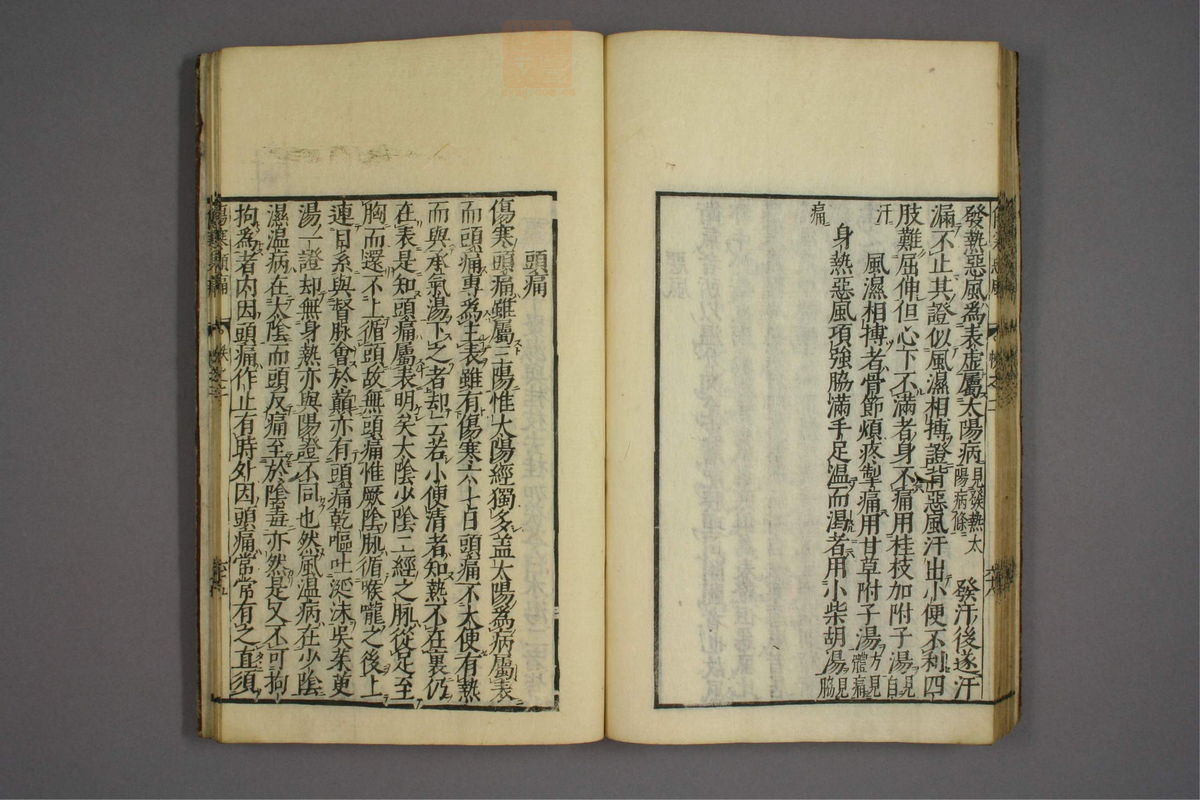 發熱惡風爲表虛屬太陽病見發熱太陽病條 發汗後遂汗
漏不止其證似風濕相搏證皆惡風汗出小便不利四
肢難屈伸但心下不滿者身不痛用桂枝加附子湯見自
汗
風濕相搏者骨節煩疼掣痛用甘草附子湯方見體痛
身熱惡風項強脇滿手足温而渴者用小柴胡湯見脇
痛
頭痛
傷寒頭痛雖屬三陽惟太陽經獨多盖太陽爲病屬表
而頭痛專爲主表雖有傷寒六七日頭痛不大便有熱
而與承氣湯下之者却云若小便清者知熱不在裏仍
在表是知頭痛屬表明矣太陰少陰二經之脉從足至
胸而還不上循頭故無頭痛惟厥陰脉循喉嚨之後上
連目系與督脉會於巔亦有頭痛乾嘔吐涎沫吳茱萸
湯一證却無身熱亦與陽證不同也然風温病在少陰
濕温病在太陰而頭反痛至於陰毒亦然是又不可拘
拘爲者内因頭痛作止有時外因頭痛常常有之直須
傷寒頭痛